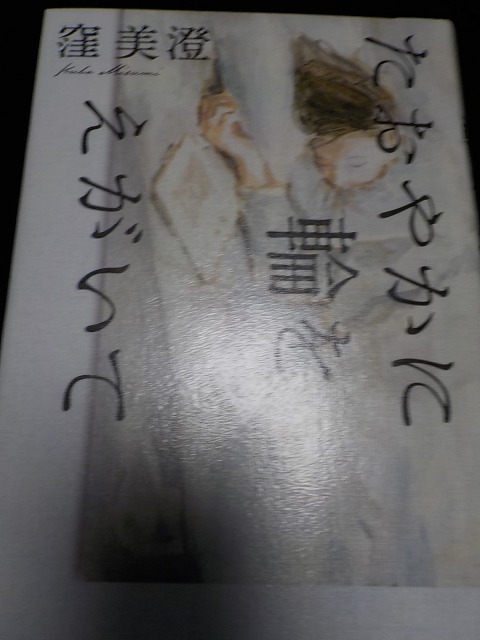 窪美澄
Kubo Misumi
たおやかに
輪を
えがいて